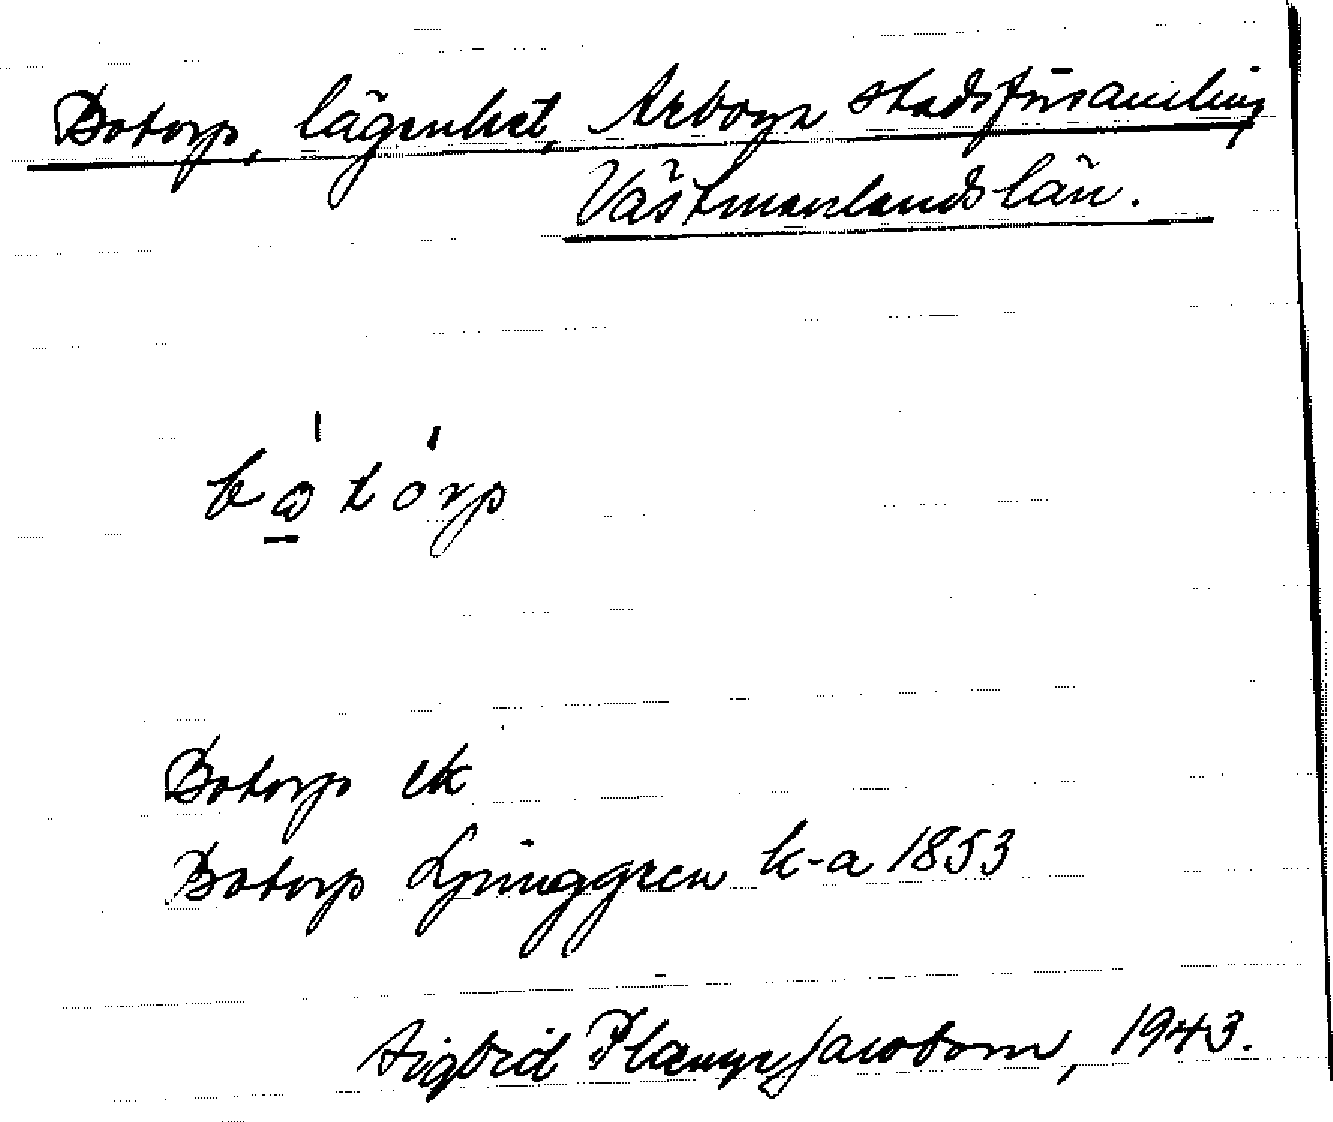 Botorp, lägenhet, Arboga stadsförsamling
Västmanlands län.
bo̲tórp
Botorp ek
Botorp Ljunggren k-a 1853
Sigrid Jacobson, 1943.